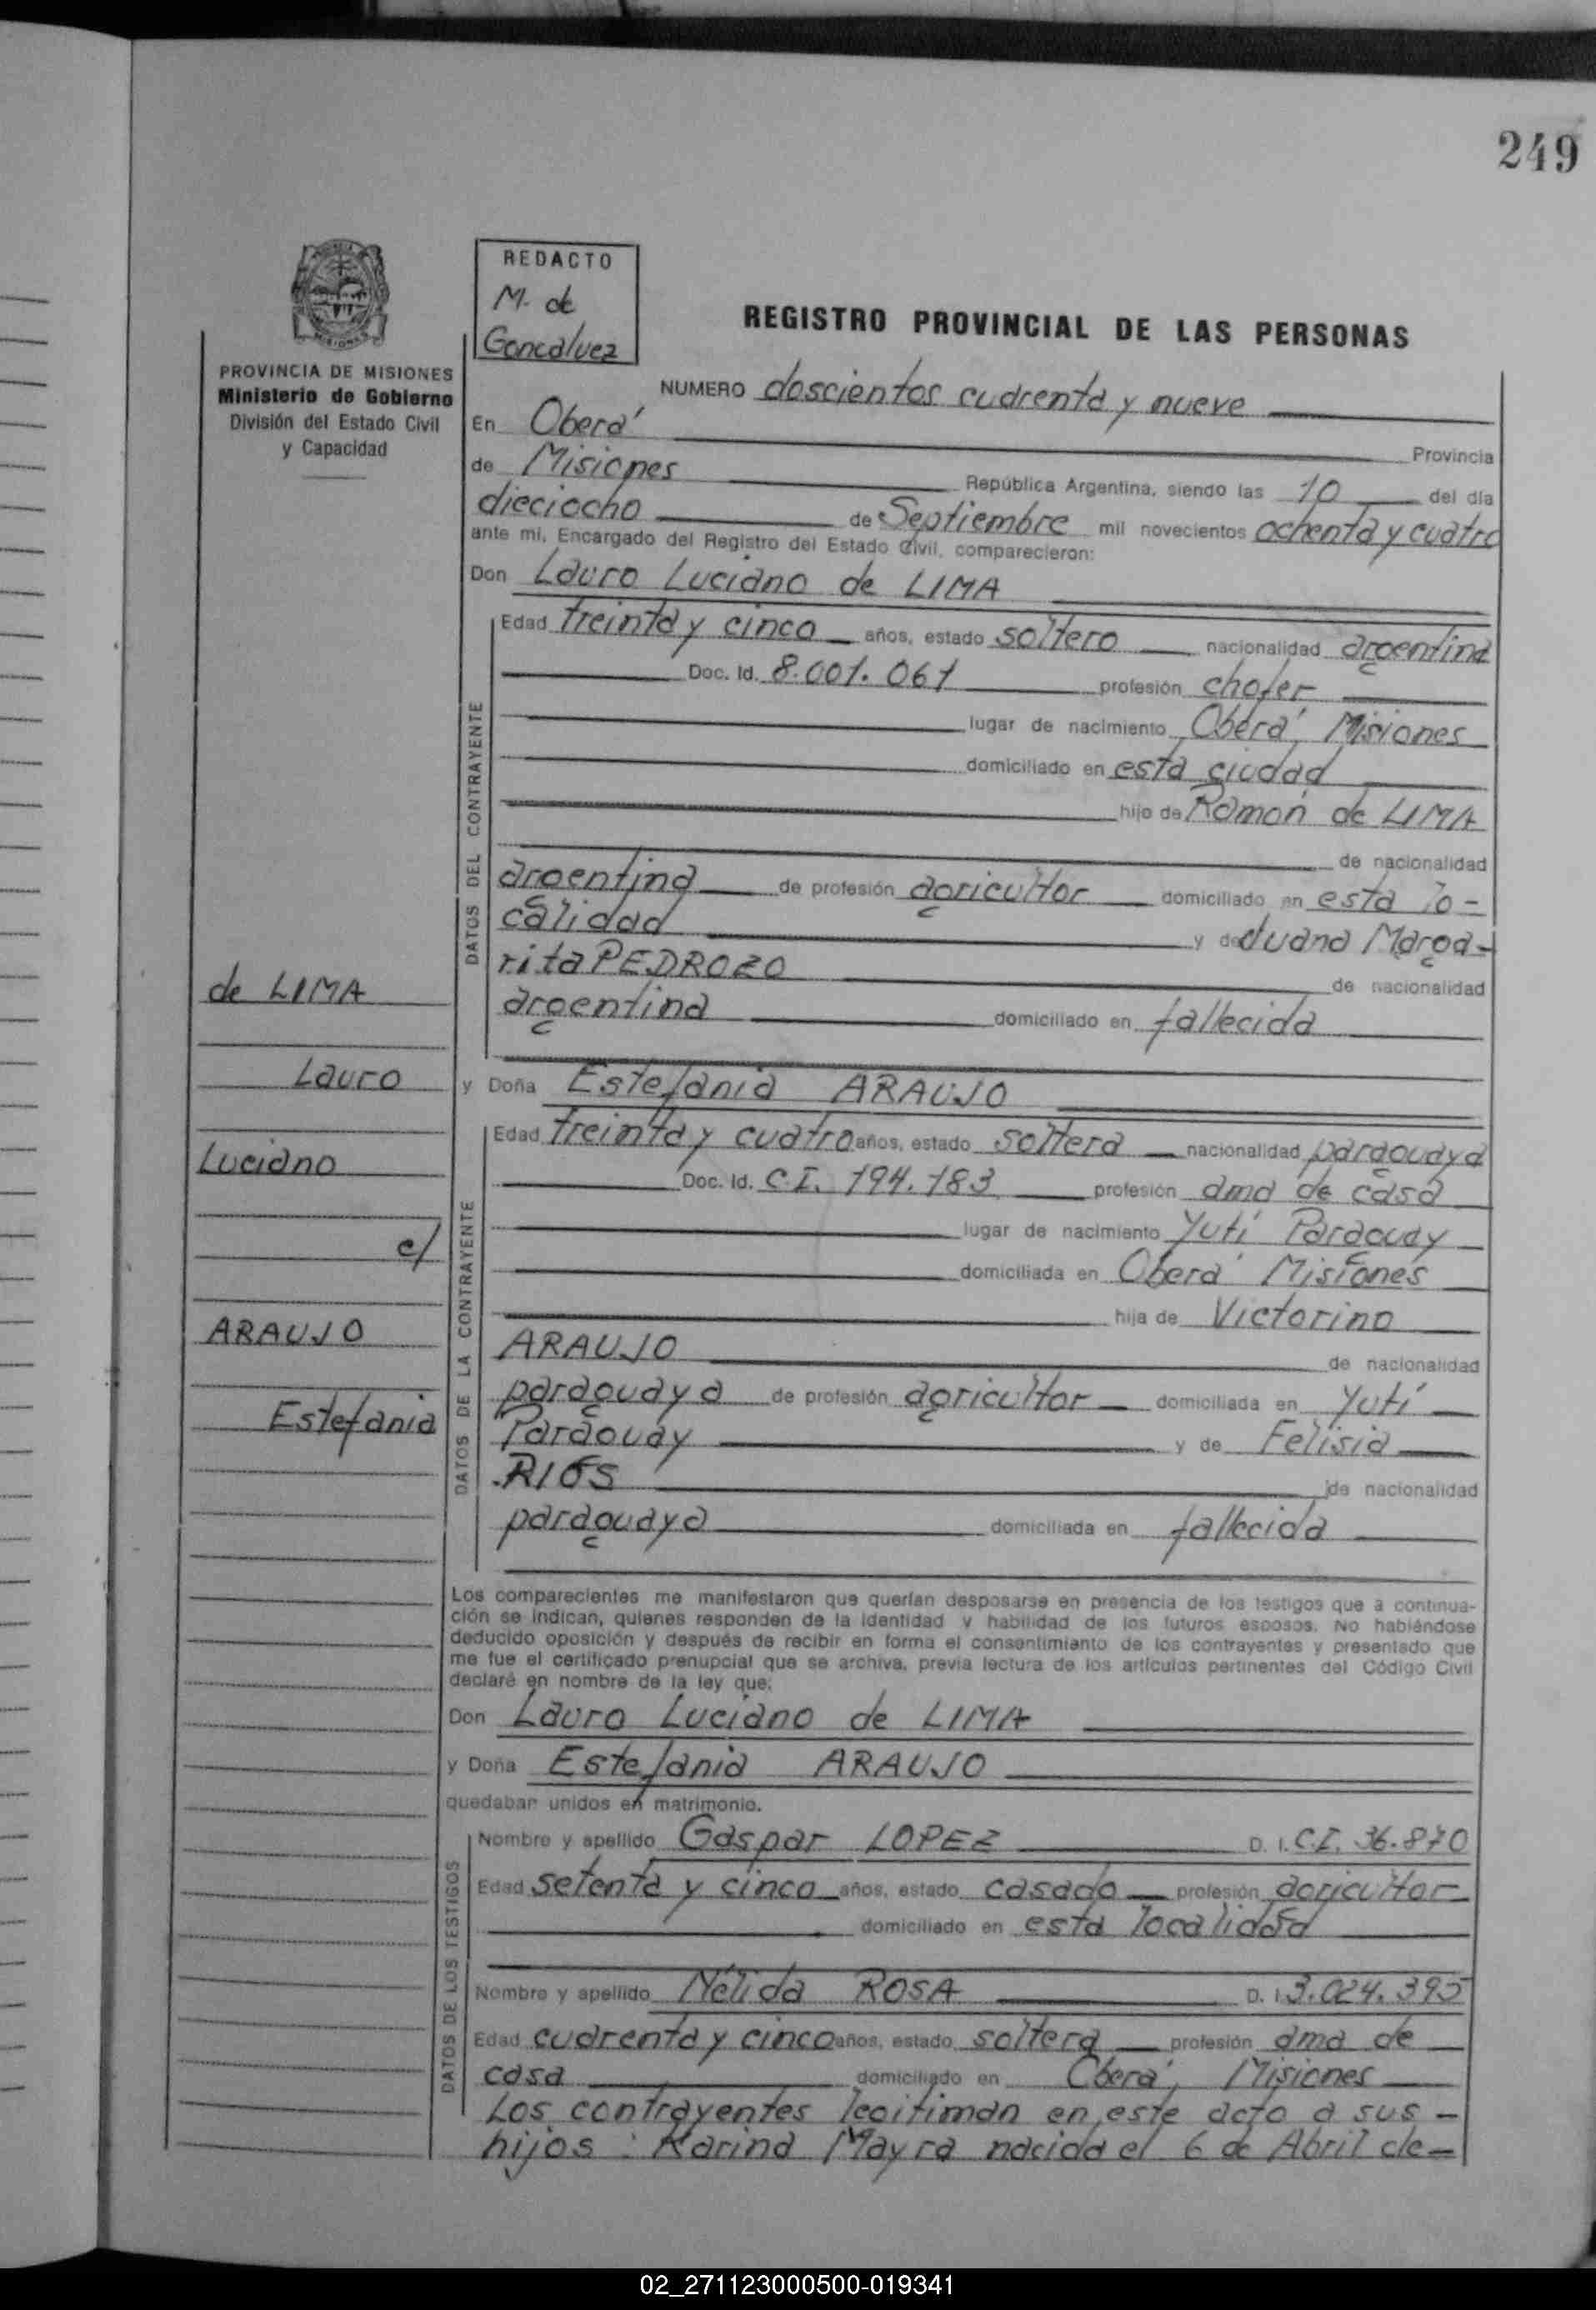 249
REDACTO
M. de
Goncalvez
REGISTRO PROVINCIAL DE LAS PERSONAS
PROVINCIA DE MISIONES
Ministerio de Gobierno
División del Estado Civil
y Capacidad
NUMERO doscientos cuarenta y nueve
En Oberá Provincia
de Misiones República Argentina, siendo las 10 del día
dieciocho de Septiembre mil novecientos ochenta y cuatro
ante mi, Encargado del Registro del Estado Civil, comparecieron:
Don Lauro Luciano de LIMA
DATOS DEL CONTRAYENTE
Edad treinta y cinco años, estado soltero nacionalidad argentina
Doc. Id. 8.001.061 profesión chofer
lugar de nacimiento Oberá, Misiones
domiciliado en esta ciudad
hijo de Ramón de LIMA
de nacionalidad
argentina de profesión agricultor domiciliado en esta lo-
calidad y de Juana Marga-
rita PEDROZO de nacionalidad
argentina domiciliado en fallecida
de LIMA
Lauro
Luciano
c/
ARAUJO
Estefania
y Doña Estefania ARAUJO
DATOS DE LA CONTRAYENTE
Edad treinta y cuatro años, estado soltera nacionalidad paraguaya
Doc. Id. C.I. 194.183 profesión ama de casa
lugar de nacimiento Yutí Paraguay
domiciliada en Oberá Misiones
hija de Victorino
ARAUJO de nacionalidad
paraguaya de profesión agricultor domiciliada en Yutí
Paraguay y de Felisia
RIOS de nacionalidad
paraguaya domiciliada en fallecida
Los comparecientes me manifestaron que querían desposarse en presencia de los testigos que a continua-
ción se indican, quienes responden de la identidad y habilidad de los futuros esposos. No habiéndose
deducido oposición y después de recibir en forma el consentimiento de los contrayentes y presentado que
me fue el certificado prenupcial que se archiva, previa lectura de los artículos pertinentes del Código Civil
declaré en nombre de la ley que:
Don Lauro Luciano de LIMA
y Doña Estefania ARAUJO
quedaban unidos en matrimonio.
DATOS DE LOS TESTIGOS
Nombre y apellido Gaspar LOPEZ D. I. C.I. 36.870
Edad setenta y cinco años, estado casado profesión agricultor
domiciliado en esta localidad
Nombre y apellido Nélida ROSA D. I. 3.024.395
Edad cuarenta y cinco años, estado soltera profesión ama de
casa domiciliado en Oberá, Misiones
Los contrayentes legitiman en este acto a sus -
hijos : Karina Mayra nacida el 6 de Abril de-
02_271123000500-019341